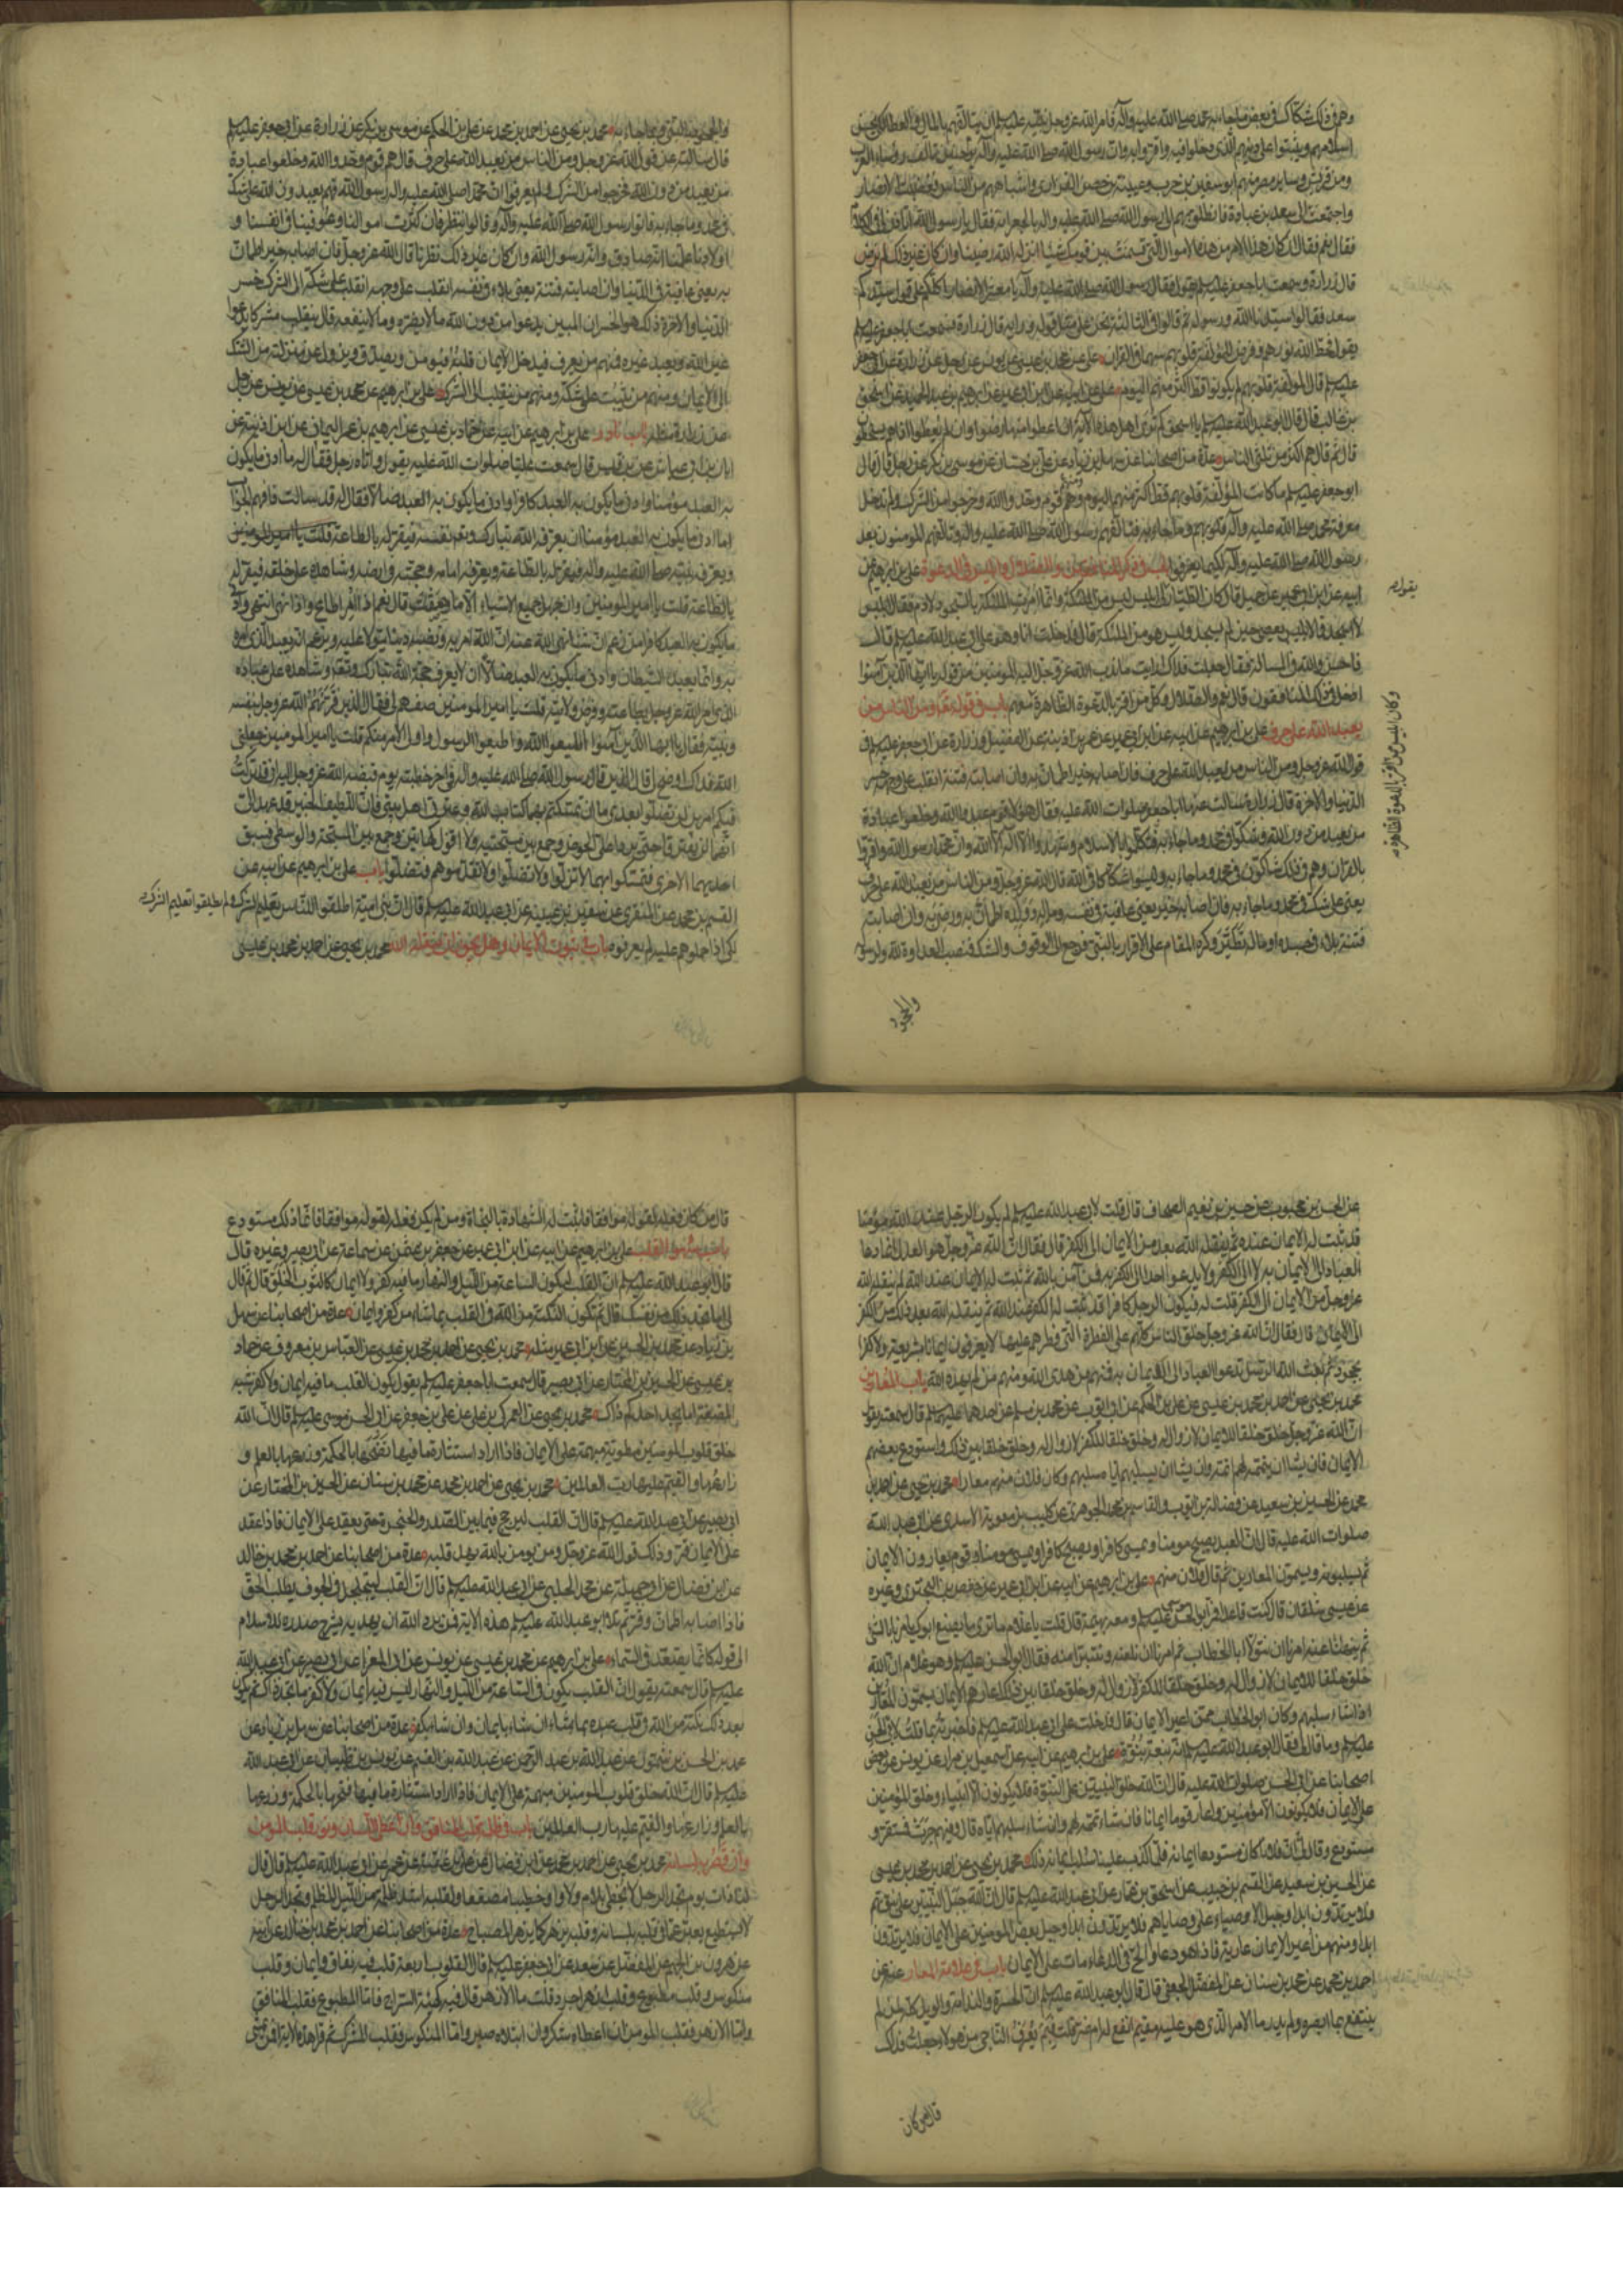 وهم في ذلك شكاك في بعض ما جاء به محمد صلى الله عليه وآله فامر الله عز وجل نبيه عليه السلم ان يتألفهم بالمال والعطاء لكي يحسن
اسلامهم ويثبتوا على دينهم الذي دخلوا فيه واقروا به وان رسول الله صلى الله عليه وآله يوم حنين تألف رؤساء العرب
ومن قريش وساير مضر منهم ابو سفين بن حرب وعيينة بن حصن الفزاري واشباههم من الناس فغضبت الانصار
واجتمعت الى سعد بن عبادة فانطلق بهم الى رسول الله صلى الله عليه واله بالجعرانه فقال يا رسول الله اتأذن لي في الكلام
فقال نعم فقال ان كان هذا الامر من هذه الاموال التي قسمت بين قومك شيئا انزله الله رضينا وان كان غير ذلك لم نرض
قال زرارة وسمعت ابا جعفر عليه السلم يقول فقال رسول الله صلى الله عليه وآله يا معشر الانصار اكلكم على قول سيدكم
سعد فقالوا سيدنا الله ورسوله ثم قالوا في الثالثة نحن على مثل قوله ورأيه قال زرارة فسمعت ابا جعفر عليه السلم
يقول فحط الله نورهم وفرض للمؤلفة قلوبهم سهما في القران علي عن محمد بن عيسى عن يونس عن رجل عن زرارة عن ابي جعفر
عليه السلم قال المؤلفة قلوبهم لم يكونوا قط اكثر منهم اليوم علي عن ابيه عن ابن ابي عمير عن ابراهيم بن عبد الحميد عن اسحق
بن غالب قال قال ابو عبد الله عليه السلم يا اسحق كم ترى اهل هذه الآية ان اعطوا منها رضوا وان لم يعطوا اذا هم يسخطون
قال ثم قال هم اكثر من ثلثي الناس عدة من اصحابنا عن سهل بن زياد عن علي بن حسان عن موسى بن بكر عن رجل قال قال
ابو جعفر عليه السلم ما كانت المؤلفة قلوبهم قط اكثر منهم اليوم وهم قوم وحدوا الله وخرجوا من الشرك ولم تدخل
معرفة محمد صلى الله عليه وآله قلوبهم وما جاء به فتألفهم رسول الله صلى الله عليه واله وتألفهم المؤمنون بعد
رسول الله صلى الله عليه وآله لكيما يعرفوا باب في ذكر المنافقين والضلال وابليس في الدعوة علي بن ابراهيم عن
ابيه عن ابن ابي عمير عن جميل قال كان الطيار لي ابليس ليس من الملئكة وانما امرت الملئكة بالسجود لآدم فقال ابليس
لا اسجد فما لابليس يعصي حين لم يسجد وليس هو من الملئكة قال فدخلت انا وهو على ابي عبد الله عليه السلم قال
فاحسن والله في المسألة فقال جعلت فداك ارايت ما ندب الله عز وجل اليه المؤمنين من قوله يا ايها الذين آمنوا
ادخل في ذلك المنافقون قال نعم والضلال وكل من اقر بالدعوة الظاهرة معهم باب في قوله تعالى ومن الناس من
يعبد الله على حرف علي بن ابراهيم عن ابيه عن ابن ابي عمير عن عمر بن اذينه عن الفضيل وزرارة عن ابي جعفر عليه السلم في
قول الله عز وجل ومن الناس من يعبد الله على حرف فان اصابه خير اطمأن به وان اصابته فتنة انقلب على وجهه خسر
الدنيا والآخرة قال زرارة سالت عنها ابا جعفر صلوات الله عليه فقال هؤلاء قوم عبدوا الله وخلعوا عبادة
من يعبد من دون الله وشكوا في محمد وما جاء به فتكلموا بالاسلام وشهدوا ان لا اله الا الله وان محمدا رسول الله واقروا
بالقران وهم في ذلك شاكون في محمد وما جاء به وليسوا شكاكا في الله قال الله عز وجل ومن الناس من يعبد الله على حرف
يعني على شك في محمد وما جاء به فان اصابه خير يعني عافية في نفسه وماله وولده اطمأن به ورضي به وان اصابته
فتنة بلاء في جسده او ماله تطير وكره المقام على الاقرار بالنبي فرجع الى الوقوف والشك فنصب العداوة لله ولرسوله
يقول
وكان ابليس من اقر بالدعوة الظاهرة معهم
والجحود
والجحود بالنبي وما جاء به محمد بن يحيى عن احمد بن محمد عن علي بن الحكم عن موسى بن بكر عن زرارة عن ابي جعفر عليه السلم
قال سالته عن قول الله عز وجل ومن الناس من يعبد الله على حرف قال هم قوم وحدوا الله وخلعوا عبادة
من يعبد من دون الله فخرجوا من الشرك ولم يعرفوا ان محمدا صلى الله عليه واله رسول الله فهم يعبدون الله على شك
في محمد وما جاء به فاتوا رسول الله صلى الله عليه وآله وقالوا ننظر فان كثرت اموالنا وعوفينا في انفسنا و
اولادنا علمنا انه صادق وانه رسول الله وان كان غير ذلك نظرنا قال الله عز وجل فان اصابه خير اطمأن
به يعني عافية في الدنيا وان اصابته فتنة يعني بلاء في نفسه انقلب على وجهه انقلب على شكه الى الشرك خسر
الدنيا والاخرة ذلك هو الخسران المبين يدعوا من دون الله ما لا يضره وما لا ينفعه قال ينقلب مشركا يدعوا
غير الله ويعبد غيره فمنهم من يعرف فيدخل الايمان قلبه فيؤمن ويصدق ويزول عن منزلته من الشك
الى الايمان ومنهم من يثبت على شكه ومنهم من ينقلب الى الشرك علي بن ابراهيم عن محمد بن عيسى عن يونس عن رجل
عن زرارة مثله باب نادر علي بن ابراهيم عن ابيه عن حماد بن عيسى عن ابرهيم بن عمر اليماني عن ابن اذينة عن
ابان بن ابي عياش عن سليم بن قيس قال سمعت عليا صلوات الله عليه يقول واتاه رجل فقال له ما ادنى ما يكون
به العبد مومنا وادنى ما يكون به العبد كافرا وادنى ما يكون به العبد ضالا فقال له قد سالت فافهم الجواب
اما ادنى ما يكون به العبد مؤمنا ان يعرفه الله تبارك وتعالى نفسه فيقر له بالطاعة
ويعرفه نبيه صلى الله عليه وآله فيقر له بالطاعة ويعرفه امامه وحجته في ارضه وشاهده على خلقه فيقر له
بالطاعة قلت يا امير المومنين وان جهل جميع الاشياء الا ما وصفت قال نعم اذا امر اطاع واذا نهي انتهى وادنى
ما يكون به العبد كافرا من زعم ان شيئا نهى الله عنه ان الله امر به ونصبه دينا يتولا عليه ويزعم انه يعبد الذي امره
به وانما يعبد الشيطان وادنى ما يكون به العبد ضالا ان لا يعرف حجة الله تبارك وتعالى وشاهده على عباده
الذي امر الله عز وجل بطاعته وفرض ولايته قلت يا امير المومنين صفهم لي فقال الذين قرنهم الله عز وجل بنفسه
ونبيه فقال يا ايها الذين آمنوا اطيعوا الله واطيعوا الرسول واولي الامر منكم قلت يا امير المومنين جعلني
الله فداك اوضح لي فقال الذين قال رسول الله صلى الله عليه واله في اخر خطبته يوم قبضه الله عز وجل اليه اني قد تركت
فيكم امرين لن تضلوا بعدي ما ان تمسكتم بهما كتاب الله وعترتي اهل بيتي فان اللطيف الخبير قد عهد الي
انهما لن يفترقا حتى يردا علي الحوض كهاتين وجمع بين مسبحتيه ولا اقول كهاتين وجمع بين المسبحة والوسطى فتسبق
احديهما الاخرى فتمسكوا بهما لا تزلوا ولا تضلوا ولا تقدموهم فتضلوا باب علي بن ابرهيم عن ابيه عن
القسم بن محمد عن المنقري عن سفين بن عيينه عن ابي عبد الله عليه السلم قال ان بني امية اطلقوا للناس تعليم الايمان ولم يطلقوا تعليم الشرك
لكي اذا حملوهم عليه لم يعرفوه باب في ثبوت الايمان وهل يجوز ان ينقله الله محمد بن يحيى عن احمد بن محمد بن عيسى
عن الحسن بن محبوب عن حسين بن نعيم الصحاف قال قلت لابي عبد الله عليه السلم لم يكون الرجل عند الله مؤمنا
قد ثبت له الايمان عنده ثم ينقله الله بعد من الايمان الى الكفر قال فقال ان الله عز وجل هو العدل انما دعا
العباد الى الايمان به لا الى الكفر ولا يدعوا احدا الى الكفر به فمن آمن بالله ثم ثبت له الايمان عند الله لم ينقله الله
عز وجل من الايمان الى الكفر قلت له فيكون الرجل كافرا قد ثبت له الكفر عند الله ثم ينقله الله بعد ذلك من الكفر
الى الايمان قال فقال ان الله عز وجل خلق الناس كلهم على الفطرة التي فطرهم عليها لا يعرفون ايمانا بشريعة ولا كفرا
بجحود ثم بعث الله الرسل تدعوا العباد الى الايمان به فمنهم من هدى الله ومنهم من لم يهده الله باب المعارين
محمد بن يحيى عن احمد بن محمد بن عيسى عن علي بن الحكم عن ابي ايوب عن محمد بن مسلم عن احدهما عليه السلم قال سمعته يقول
ان الله عز وجل خلق خلقا للايمان لا زوال له وخلق خلقا للكفر لا زوال له وخلق خلقا بين ذلك واستودع بعضهم
الايمان فان يشا ان يتمه لهم اتمه وان يشا ان يسلبهم اياه سلبهم وكان فلان منهم معارا محمد بن يحيى عن احمد بن
محمد عن الحسين بن سعيد عن فضالة بن ايوب والقاسم بن محمد الجوهري عن كليب بن معوية الاسدي عن ابي عبد الله
صلوات الله عليه قال ان العبد يصبح مومنا ويمسي كافرا ويصبح كافرا ويمسي مومنا وقوم يعارون الايمان
ثم يسلبونه ويسمون المعارين ثم قال فلان منهم علي بن ابراهيم عن ابيه عن ابن ابي عمير عن حفص بن البختري وغيره
عن عيسى شلقان قال كنت قاعدا فمر ابو الحسن موسى عليه السلم ومعه بهيمة قال قلت يا غلام ما ترى ما يصنع ابوك يامرنا بالشئ
ثم ينهانا عنه امرنا ان نتولى ابا الخطاب ثم امرنا ان نلعنه ونتبرأ منه فقال ابو الحسن عليه السلم وهو غلام ان الله
خلق خلقا للايمان لا زوال له وخلق خلقا للكفر لا زوال له وخلق خلقا بين ذلك اعارهم الايمان يسمون المعارين
اذا شاء سلبهم وكان ابو الخطاب ممن اعير الايمان قال فدخلت على ابي عبد الله عليه السلم فاخبرته بما قلت لابي الحسن
عليه السلم وما قال لي فقال ابو عبد الله عليه السلم انه نبعة نبوة علي بن ابرهيم عن ابيه عن اسمعيل بن مرار عن يونس عن بعض
اصحابنا عن ابي الحسن صلوات الله عليه قال ان الله خلق النبيين على النبوة فلا يكونون الا انبياء وخلق المؤمنين
على الايمان فلا يكونون الا مؤمنين واعار قوما ايمانا فان شاء تممه لهم وان شاء سلبهم اياه قال وفيهم جرت فمستقر و
مستودع وقال لي ان فلانا كان مستودعا ايمانه فلما كذب علينا سلب ايمانه ذلك محمد بن يحيى عن احمد بن محمد بن عيسى
عن الحسين بن سعيد عن القسم بن حبيب عن اسحق بن عمار عن ابي عبد الله عليه السلم قال ان الله جبل النبيين على نبوتهم
فلا يرتدون ابدا وجبل الاوصياء على وصاياهم فلا يرتدون ابدا وجبل بعض المومنين على الايمان فلا يرتدون
ابدا ومنهم من اعير الايمان عارية فاذا هو دعا والح في الدعاء مات على الايمان باب في علامة المعار عنه عن
احمد بن محمد عن محمد بن سنان عن المفضل الجعفي قال قال ابو عبد الله عليه السلم ان الحسرة والندامة والويل كله لمن لم
ينتفع بما ابصره ولم يدر ما الامر الذي هو عليه مقيم انفع له ام ضر قلت فبم يعرف الناجي من هؤلاء جعلت فداك
قال من كان
قال من كان فعله لقوله موافقا فاثبت له الشهادة بالنجاة ومن لم يكن فعله لقوله موافقا فانما ذلك مستودع
باب سهو القلب علي بن ابرهيم عن ابيه عن ابن ابي عمير عن جعفر بن عثمن عن سماعة عن ابي بصير وغيره قال
قال ابو عبد الله عليه السلم ان القلب ليكون الساعة من الليل والنهار ما فيه كفر ولا ايمان كالثوب الخلق قال ثم قال
لي اما تجد ذلك من نفسك قال ثم تكون النكتة من الله في القلب بما شاء من كفر وايمان عدة من اصحابنا عن سهل
بن زياد عن محمد بن الحسين عن ابن ابي عمير مثله محمد بن يحيى عن احمد بن محمد بن عيسى عن العباس بن معروف عن حماد
بن عيسى عن الحسين بن المختار عن ابي بصير قال سمعت ابا جعفر عليه السلم يقول يكون القلب ما فيه ايمان ولا كفر شبه
المضغة اما يجد احدكم ذاك محمد بن يحيى عن العمركي بن علي عن علي بن جعفر عن ابي الحسن موسى عليه السلم قال ان الله
خلق قلوب المومنين مطوية مبهمة على الايمان فاذا اراد استنارة ما فيها نضحها بالحكمة وزرعها بالعلم و
زارعها والقيم عليها رب العالمين محمد بن يحيى عن احمد بن محمد عن محمد بن سنان عن الحسين بن المختار عن
ابي بصير عن ابي عبد الله عليه السلم قال ان القلب ليرجج فيما بين الصدر والحنجرة حتى يعقد على الايمان فاذا عقد
على الايمان قر وذلك قول الله عز وجل ومن يومن بالله يهد قلبه عدة من اصحابنا عن احمد بن محمد بن خالد
عن ابن فضال عن ابي جميلة عن محمد الحلبي عن ابي عبد الله عليه السلم قال ان القلب ليتجلجل في الجوف يطلب الحق
فاذا اصابه اطمأن وقر ثم تلا ابو عبد الله عليه السلم هذه الاية فمن يرد الله ان يهديه يشرح صدره للاسلام
الى قوله كانما يصعد في السماء علي بن ابرهيم عن محمد بن عيسى عن يونس عن ابي المغرا عن ابي بصير عن ابي عبد الله
عليه السلم قال سمعته يقول ان القلب يكون في الساعة من الليل والنهار ليس فيه ايمان ولا كفر اما تجد ذاك ثم يكون
بعد ذلك نكتة من الله في قلب عبده بما يشاء ان شاء بايمان وان شاء بكفر عدة من اصحابنا عن سهل بن زياد عن
محمد بن الحسن بن شمون عن عبد الله بن عبد الرحمن عن عبد الله بن القسم عن يونس بن ظبيان عن ابي عبد الله
عليه السلم قال ان الله خلق قلوب المومنين مبهمة على الايمان فاذا اراد استنارة ما فيها فتحها بالحكمة وزرعها
بالعلم وزارعها والقيم عليها رب العالمين باب في ظلمة قلب المنافق وان اعطي اللسان ونور قلب المومن
وان قصر به لسانه محمد بن يحيى عن احمد بن محمد عن ابن فضال عن علي بن عقبة عن عمر عن ابي عبد الله عليه السلم قال قال
لنا ذات يوم تجد الرجل لا يخطي بلام ولا واو خطيبا مصقعا ولقلبه اشد ظلمة من الليل المظلم وتجد الرجل
لا يستطيع يعبر عما في قلبه بلسانه وقلبه يزهر كما يزهر المصباح عدة من اصحابنا عن احمد بن محمد بن خالد عن ابيه
عن هرون بن الجهم عن المفضل عن سعد عن ابي جعفر عليه السلم قال القلوب اربعة قلب فيه نفاق وايمان وقلب
منكوس وقلب مطبوع وقلب ازهر اجرد قلت ما الازهر قال فيه كهيئة السراج فاما المطبوع فقلب المنافق
واما الازهر فقلب المومن ان اعطاه شكر وان ابتلاه صبر واما المنكوس فقلب المشرك ثم قرا هذه الاية افمن يمشي